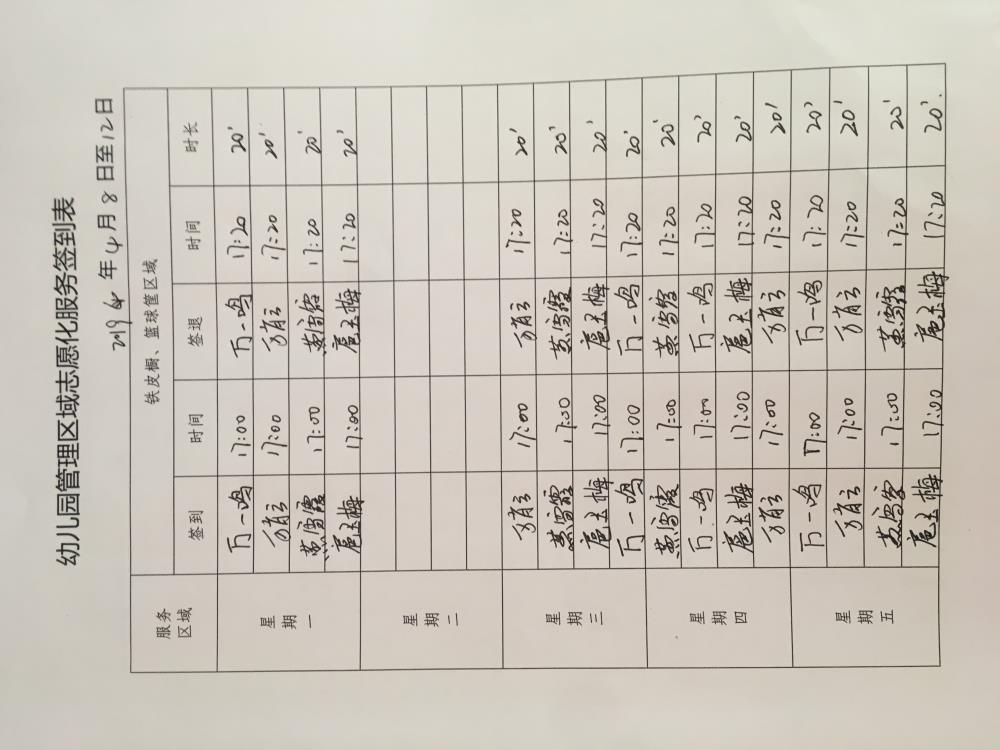 幼儿园管理区域志愿化服务签到表
2019年4月8日至12日
服务区域 铁皮橱、篮球筐区域
签到 时间 签退 时间 时长
星期一 万一鸣 17:00 万一鸣 17:20 20'
17:00 17:20 20'
17:00 17:20 20'
扈玉梅 17:00 扈玉梅 17:20 20'
星期二
星期三 17:00 17:20 20'
17:00 17:20 20'
扈玉梅 17:00 扈玉梅 17:20 20'
万一鸣 17:00 万一鸣 17:20 20'
星期四 17:00 17:20 20'
万一鸣 17:00 万一鸣 17:20 20'
扈玉梅 17:00 扈玉梅 17:20 20'
17:00 17:20 20'
星期五 万一鸣 17:00 万一鸣 17:20 20'
17:00 17:20 20'
17:00 17:20 20'
扈玉梅 17:00 扈玉梅 17:20 20'.